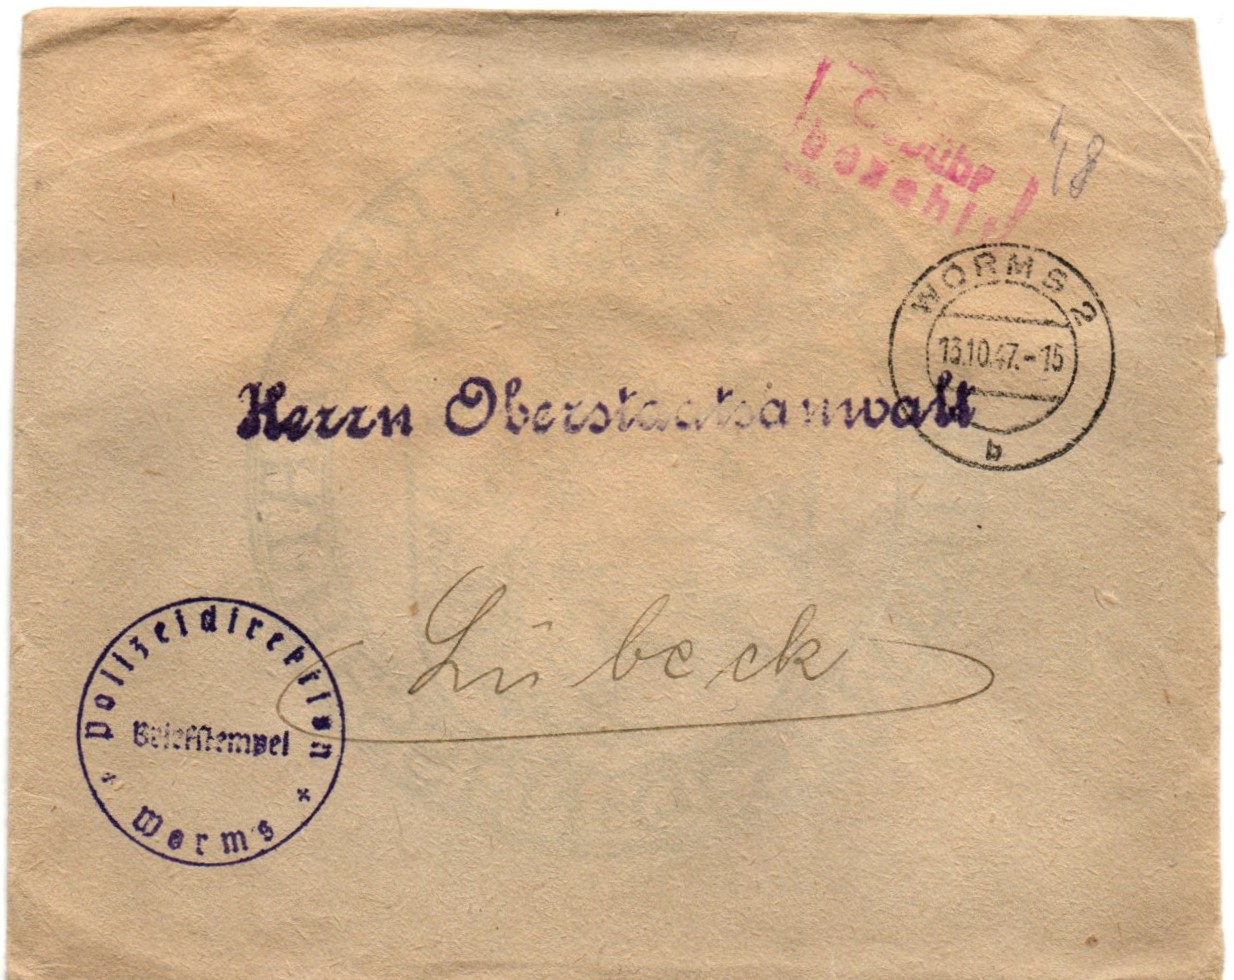 Gebühr
bezahlt
48
WORMS 2
13.10.47.-15
b
Herrn Oberstaatsanwalt
Lübeck
Polizeidirektion
Briefstempel
Worms